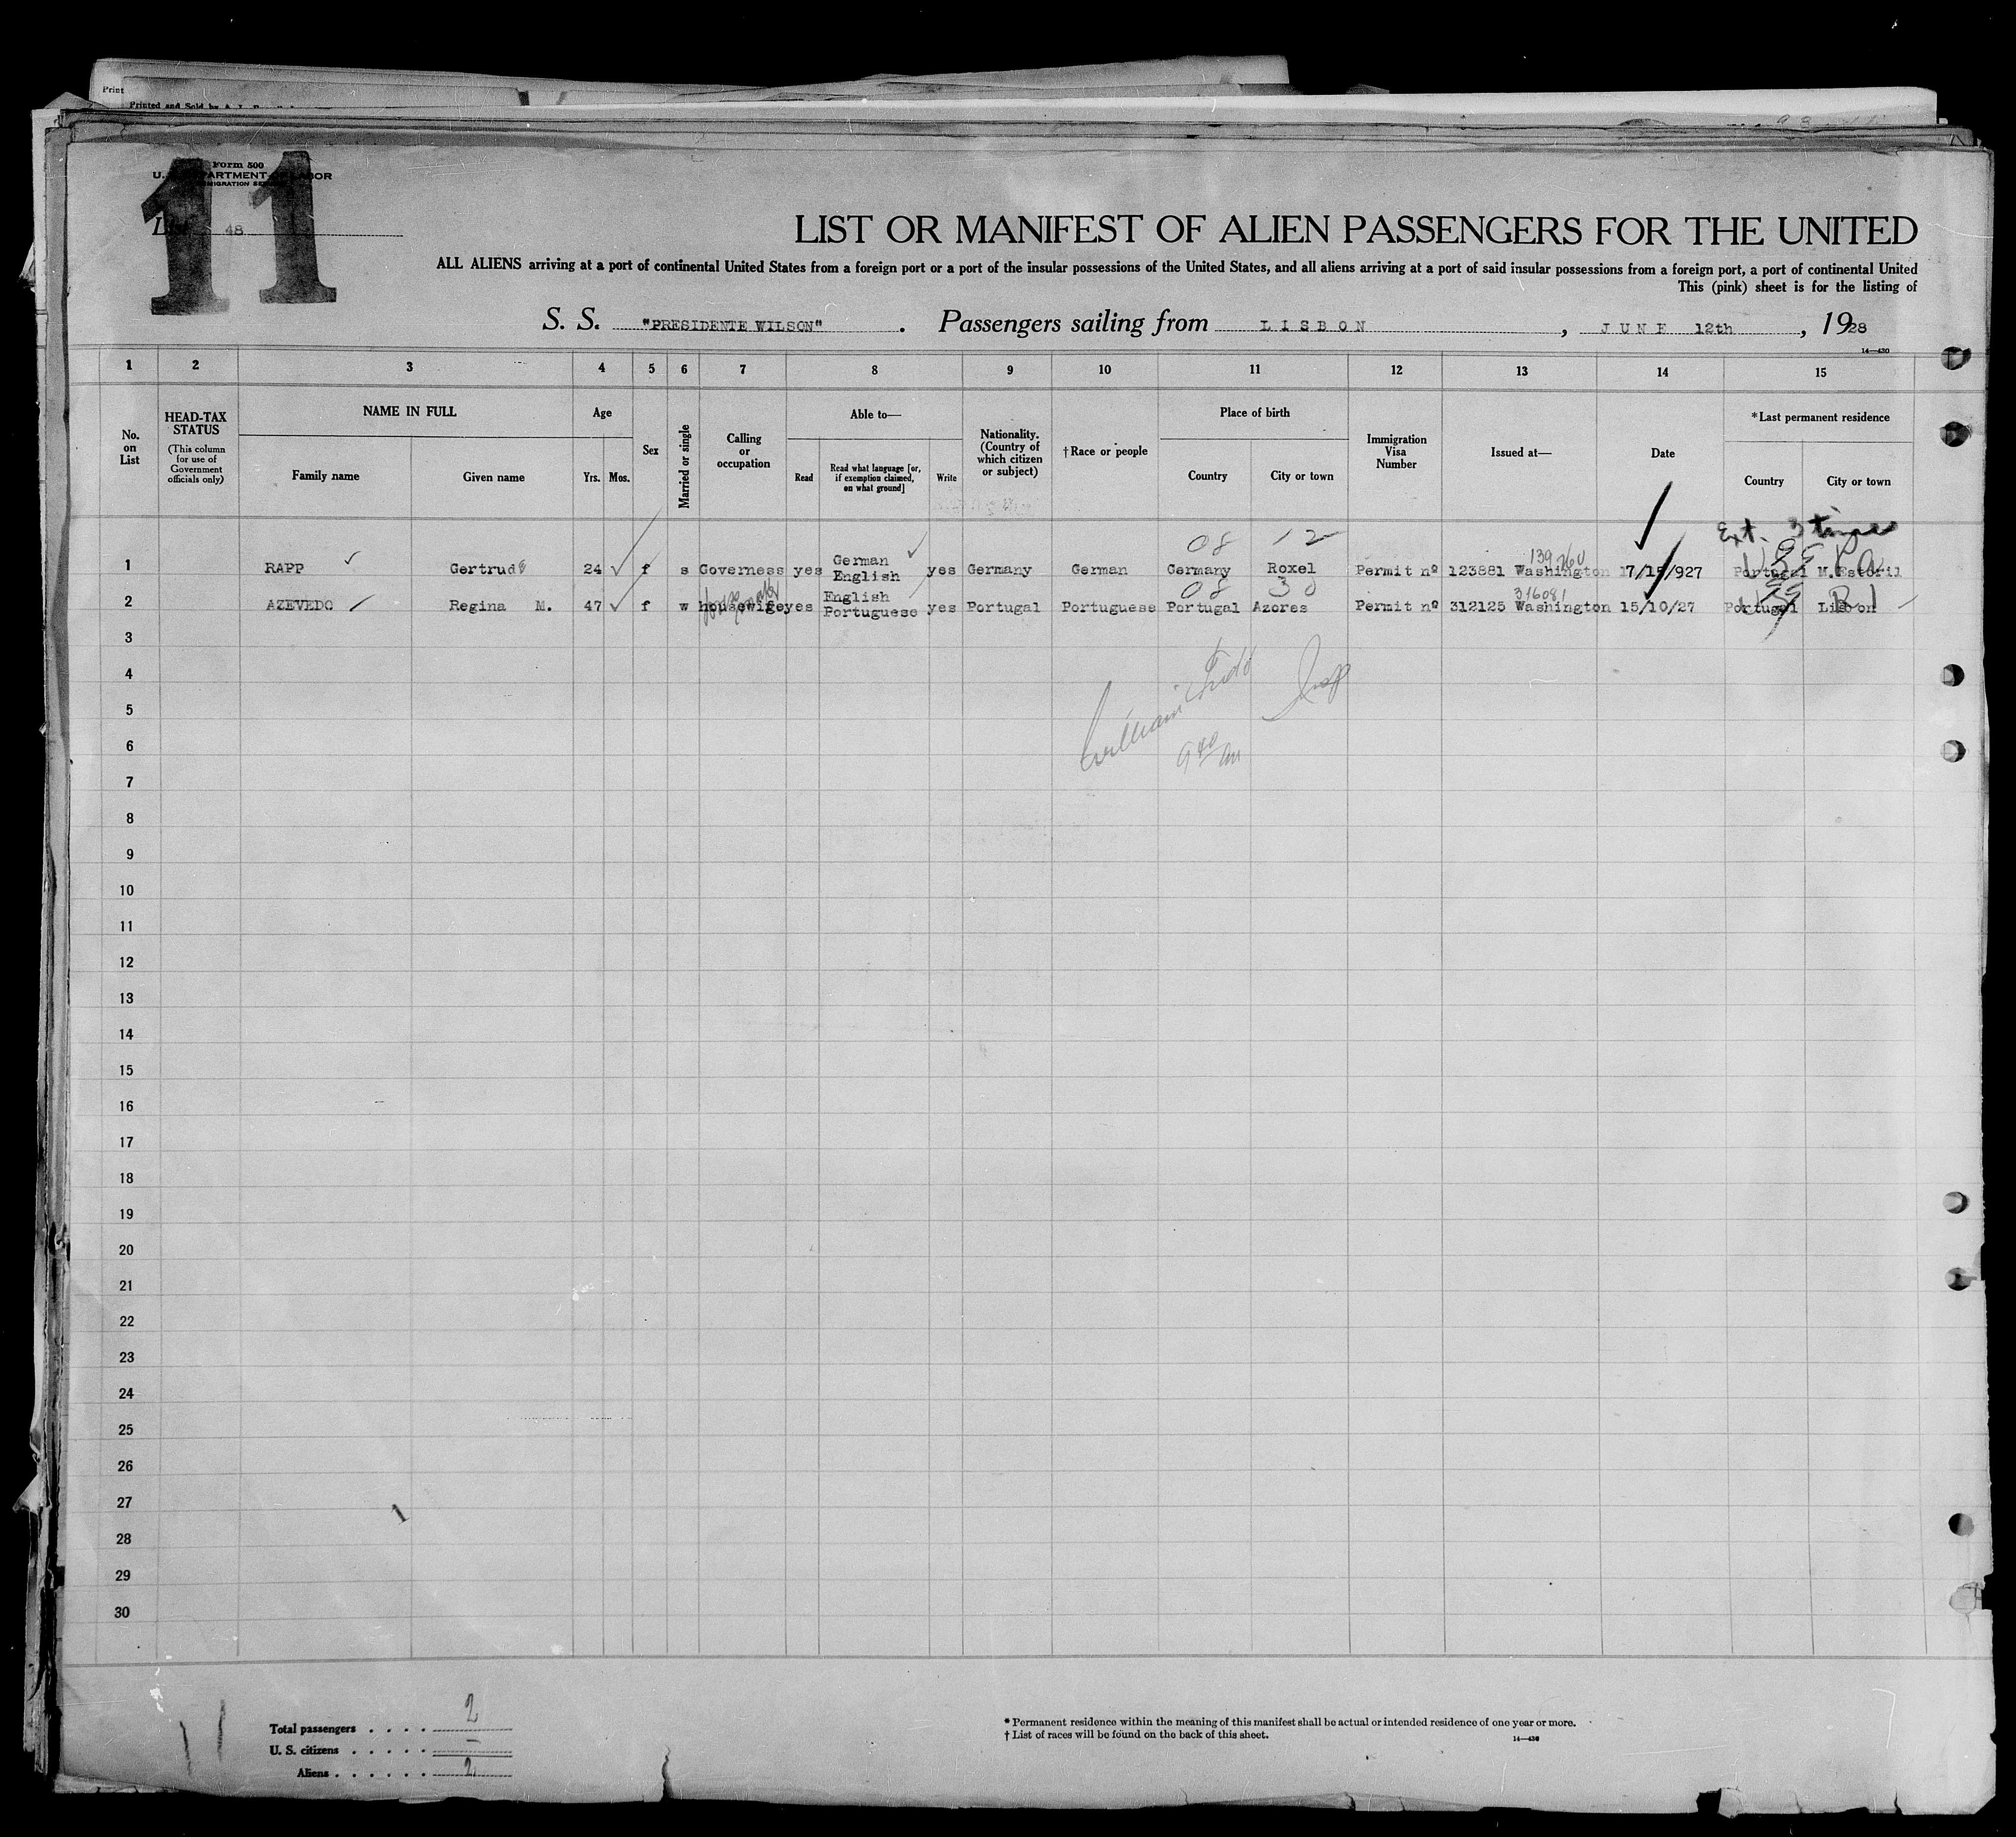 Print
Printed and Sold by A. L.
11
Form 500
U. S. DEPARTMENT OF LABOR
IMMIGRATION SERVICE
List 48
LIST OR MANIFEST OF ALIEN PASSENGERS FOR THE UNITED
ALL ALIENS arriving at a port of continental United States from a foreign port or a port of the insular possessions of the United States, and all aliens arriving at a port of said insular possessions from a foreign port, a port of continental United
This (pink) sheet is for the listing of
S. S. "PRESIDENTE WILSON". Passengers sailing from LISBON, JUNE 12th, 1928
14—430
1 2 3 4 5 6 7 8 9 10 11 12 13 14 15
No. on List
HEAD-TAX STATUS (This column for use of Government officials only)
NAME IN FULL Family name Given name
Age Yrs. Mos.
Sex
Married or single
Calling or occupation
Able to— Read Read what language [or, if exemption claimed, on what ground] Write
Nationality. (Country of which citizen or subject)
†Race or people
Place of birth Country City or town
Immigration Visa Number
Issued at—
Date
*Last permanent residence Country City or town
Ext. 3 times
08 12 139760 US Pa
1 RAPP Gertrude 24 f s Governess yes German English yes Germany German Germany Roxel Permit nº 123881 Washington 17/15/927 Portugal M. Estoril
08 30 316081 US RI
2 AZEVEDO Regina M. 47 f w housewife yes English Portuguese yes Portugal Portuguese Portugal Azores Permit nº 312125 Washington 15/10/27 Portugal Lisbon
3
4
William Insp
5
6
9 40 am
7
8
9
10
11
12
13
14
15
16
17
18
19
20
21
22
23
24
25
26
27
28
29
30
11
Total passengers . . . . 2
U. S. citizens . . . . . —
Aliens . . . . . . 2
* Permanent residence within the meaning of this manifest shall be actual or intended residence of one year or more.
† List of races will be found on the back of this sheet.
14—430